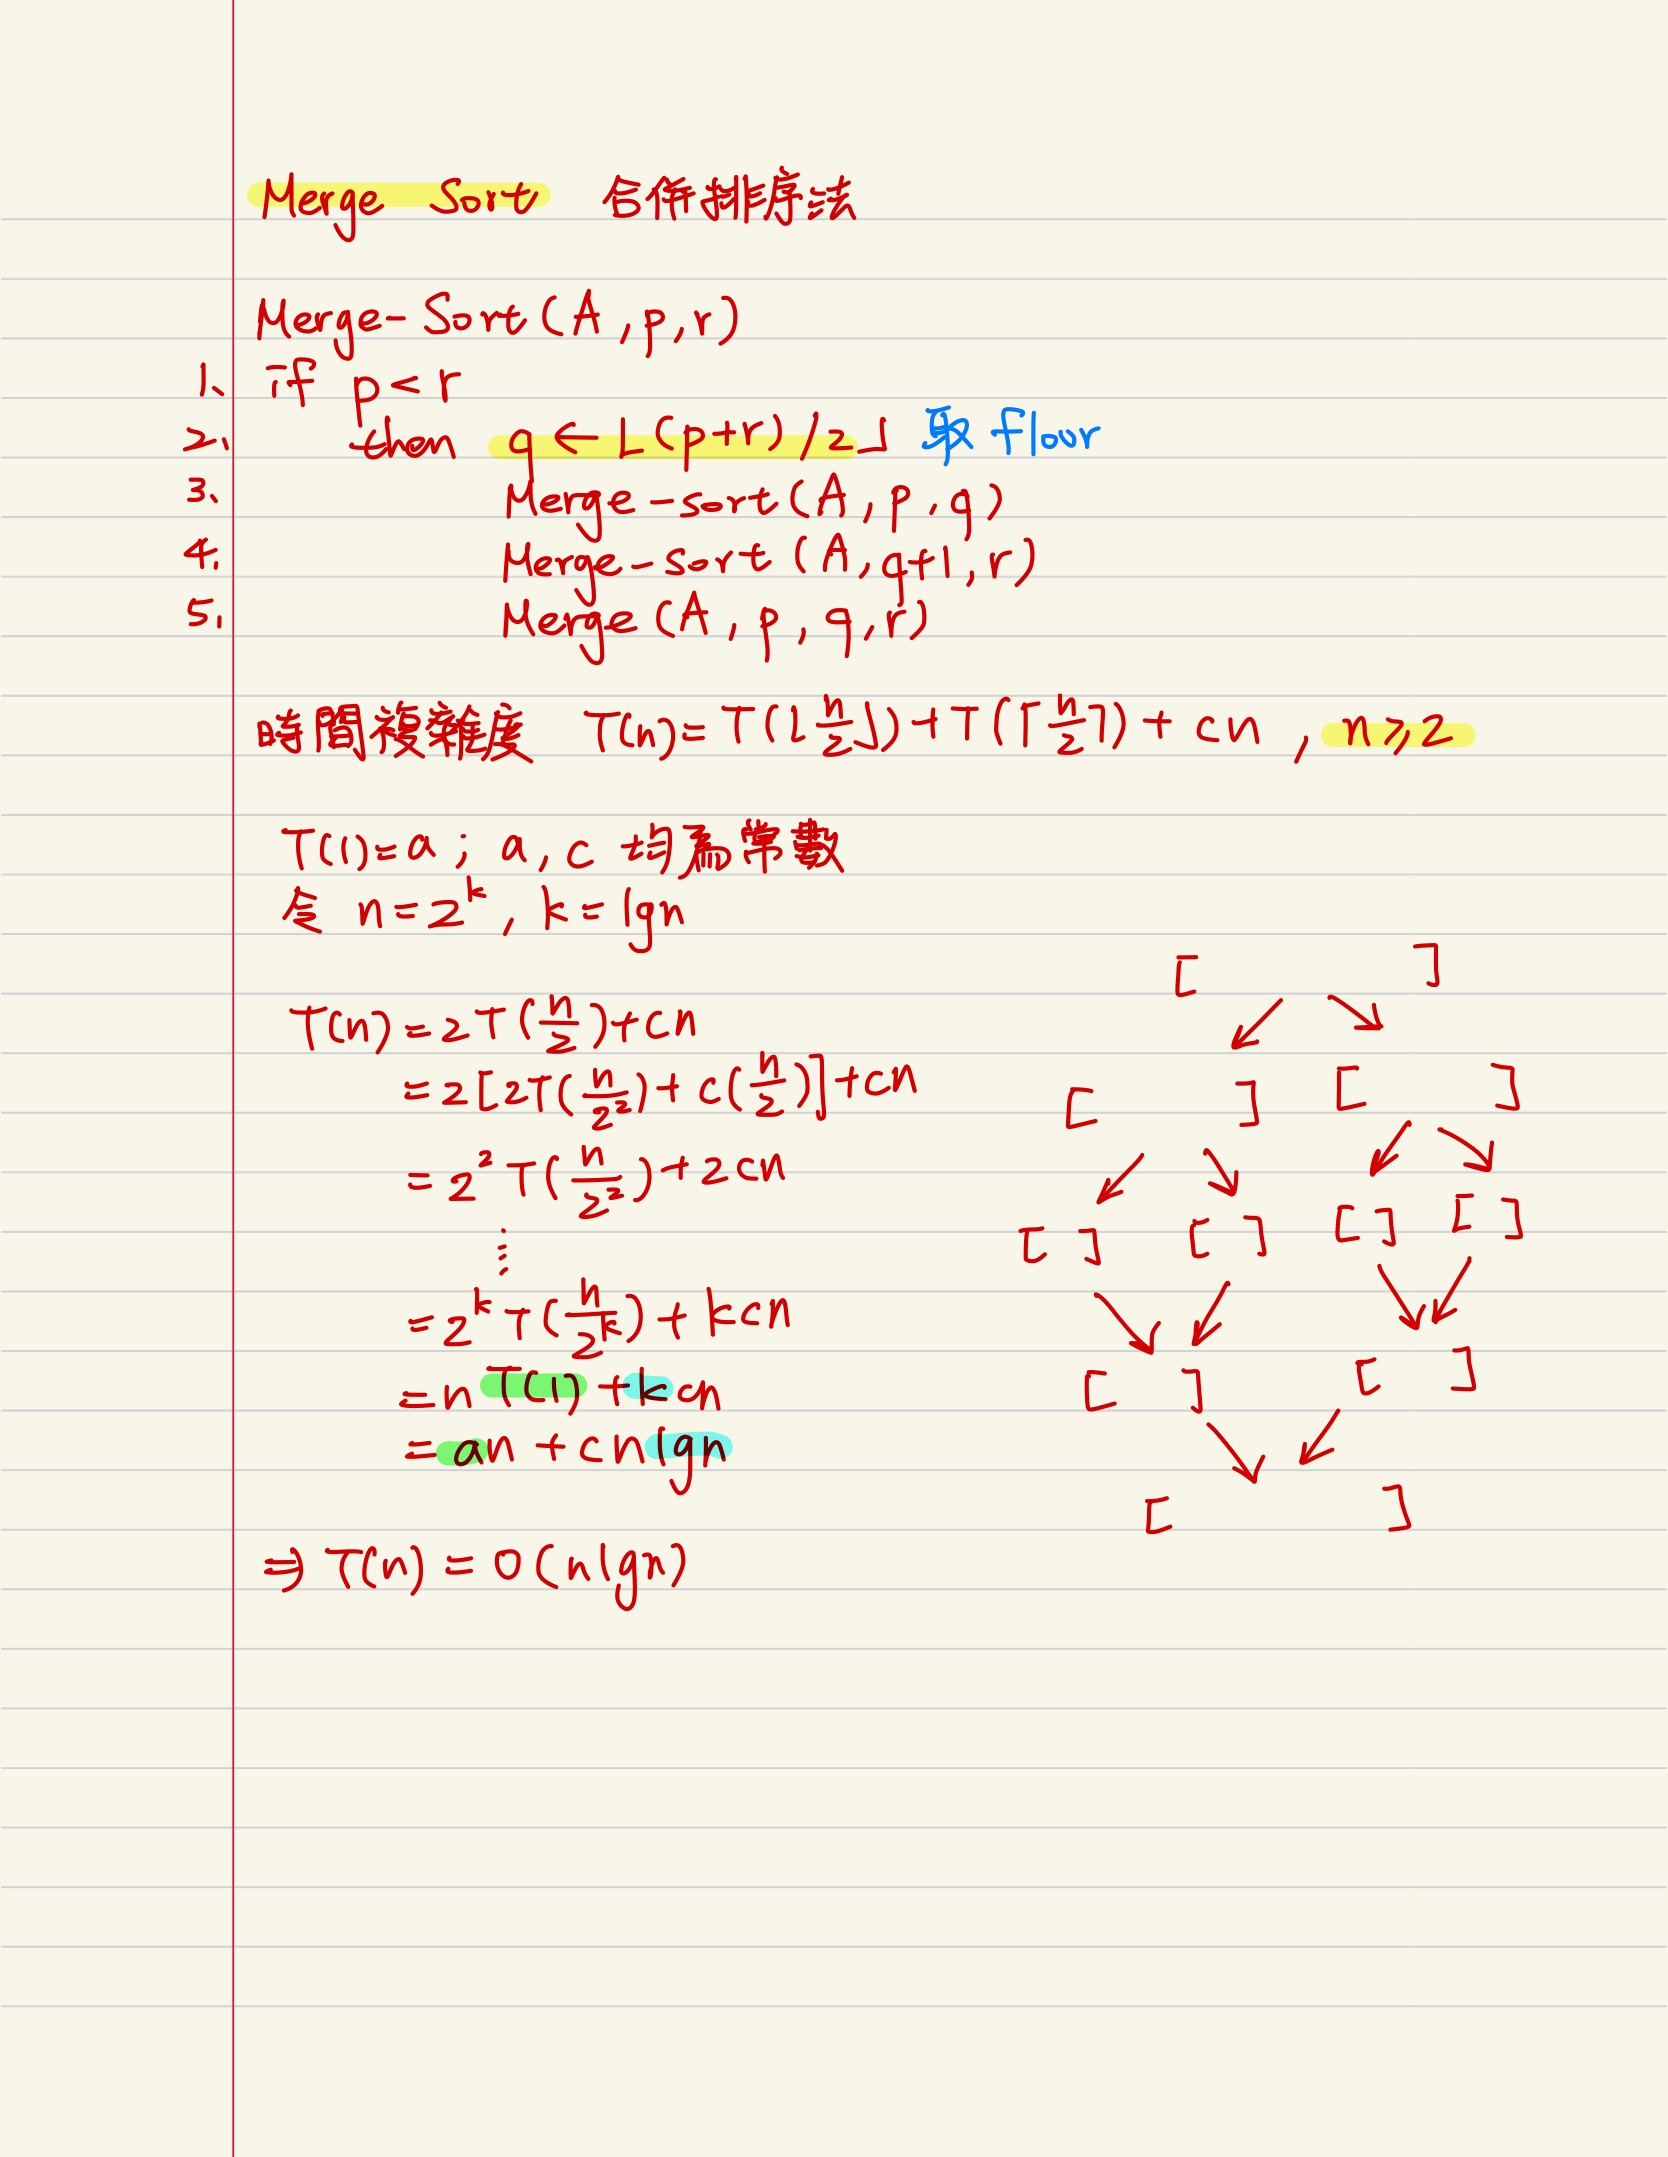 Merge Sort 合併排序法
Merge-Sort(A,p,r)
1、if p<r
2、then q←⌊(p+r)/2⌋ 取 floor
3、Merge-sort(A,p,q)
4、Merge-sort(A,q+1,r)
5、Merge(A,p,q,r)
時間複雜度 T(n)=T(⌊n/2⌋)+T(⌈n/2⌉)+cn , n≥2
T(1)=a; a,c 均為常數
令 n=2^k, k=lgn
T(n)=2T(n/2)+cn
=2[2T(n/2²)+c(n/2)]+cn
=2²T(n/2²)+2cn
⋮
=2^kT(n/2^k)+kcn
=nT(1)+kcn
=an+cnlgn
⇒ T(n)=O(nlgn)
[ ]
[ ] [ ]
[ ] [ ] [ ] [ ]
[ ] [ ]
[ ]